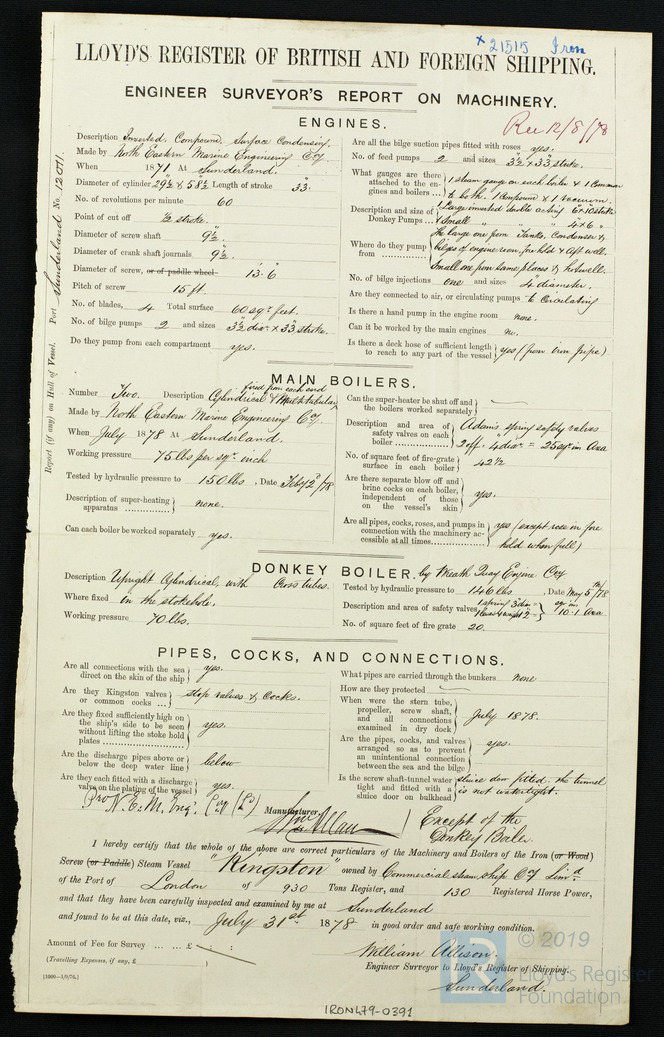 × 21515 Iron
LLOYD'S REGISTER OF BRITISH AND FOREIGN SHIPPING.
ENGINEER SURVEYOR'S REPORT ON MACHINERY.
Rec 12/8/78
Port Sunderland No. 12011.
Report (if any) on Hull of Vessel.
ENGINES.
Description Inverted, Compound, Surface Condensing.
Made by North Eastern Marine Engineering Coy
When 1871 At Sunderland.
Diameter of cylinder 29½ & 58½ Length of stroke 33"
No. of revolutions per minute 60
Point of cut off ½ stroke.
Diameter of screw shaft 9½"
Diameter of crank shaft journals, 9½"
Diameter of screw, or of paddle wheel 13.6
Pitch of screw 15 ft.
No. of blades, 4 Total surface 60 sqr feet.
No. of bilge pumps 2 and sizes 3½ diar. × 33" stroke.
Do they pump from each compartment yes.
Are all the bilge suction pipes fitted with roses yes.
No. of feed pumps 2 and sizes 3½ × 33" stroke.
What gauges are there attached to the engines and boilers 1 steam gauge on each boiler & 1 Common to both. 1 Compound & 1 vacuum.
Description and size of Donkey Pumps Large inverted double acting 6 × 10 stroke
Small 4 × 6 "
Where do they pump from the large one from Tanks, Condenser & bilges of engine room fore hld & aft well.
Small one from same places & hotwell.
No. of bilge injections one and sizes 4" diameter.
Are they connected to air, or circulating pumps to Circulating
Is there a hand pump in the engine room none.
Can it be worked by the main engines no.
Is there a deck hose of sufficient length to reach to any part of the vessel yes (from iron pipe)
MAIN BOILERS.
Number Two. Description Cylindrical & Multitubular fired from each end
Made by North Eastern Marine Engineering Coy.
When July 1878 At Sunderland.
Working pressure 75 lbs per sqr. inch
Tested by hydraulic pressure to 150 lbs, Date Feby 2nd/78
Description of super-heating apparatus none.
Can each boiler be worked separately yes.
Can the super-heater be shut off and the boilers worked separately —
Description and area of safety valves on each boiler Adam's spring safety valves
2 off. 4" diar. = 25 sqr in Area
No. of square feet of fire-grate surface in each boiler 42½
Are there separate blow off and brine cocks on each boiler, independent of those on the vessel's skin yes.
Are all pipes, cocks, roses, and pumps in connection with the machinery accessible at all times yes (except rose in fore hold when full)
DONKEY BOILER. by Wreath Quay Engine Coy
Description Upright Cylindrical, with Cross tubes.
Where fixed in the stokehole.
Working pressure 70 lbs.
Tested by hydraulic pressure to 140 lbs, Date May 5th/78
Description and area of safety valves 1 spring 3" diar 10.1 Area
No. of square feet of fire grate 20.
PIPES, COCKS, AND CONNECTIONS.
Are all connections with the sea direct on the skin of the ship yes.
Are they Kingston valves or common cocks stop valves & Cocks.
Are they fixed sufficiently high on the ship's side to be seen without lifting the stoke hold plates yes.
Are the discharge pipes above or below the deep water line below
Are they each fitted with a discharge valve on the plating of the vessel yes.
What pipes are carried through the bunkers none
How are they protected —
When were the stern tube, propeller, screw shaft, and all connections examined in dry dock July 1878.
Are the pipes, cocks, and valves arranged so as to prevent an unintentional connection between the sea and the bilge yes.
Is the screw shaft-tunnel water tight and fitted with a sluice door on bulkhead sluice door fitted. the tunnel is not watertight.
Pro N. E. M. Eng. Coy (Ld)
Manufacturer.
Wm Allan
Except of the Donkey Boiler
I hereby certify that the whole of the above are correct particulars of the Machinery and Boilers of the Iron (or Wood)
Screw (or Paddle) Steam Vessel "Kingston" owned by Commercial steam ship Coy Limd
of the Port of London of 930 Tons Register, and 130 Registered Horse Power,
and that they have been carefully inspected and examined by me at Sunderland
and found to be at this date, viz., July 31st 1878 in good order and safe working condition.
Amount of Fee for Survey ... ... £ : :
(Travelling Expenses, if any, £ )
William Allison.
Engineer Surveyor to Lloyd's Register of Shipping.
Sunderland.
(1000—1/9/76.)
© 2019
Lloyd's Register Foundation
IRON479-0391